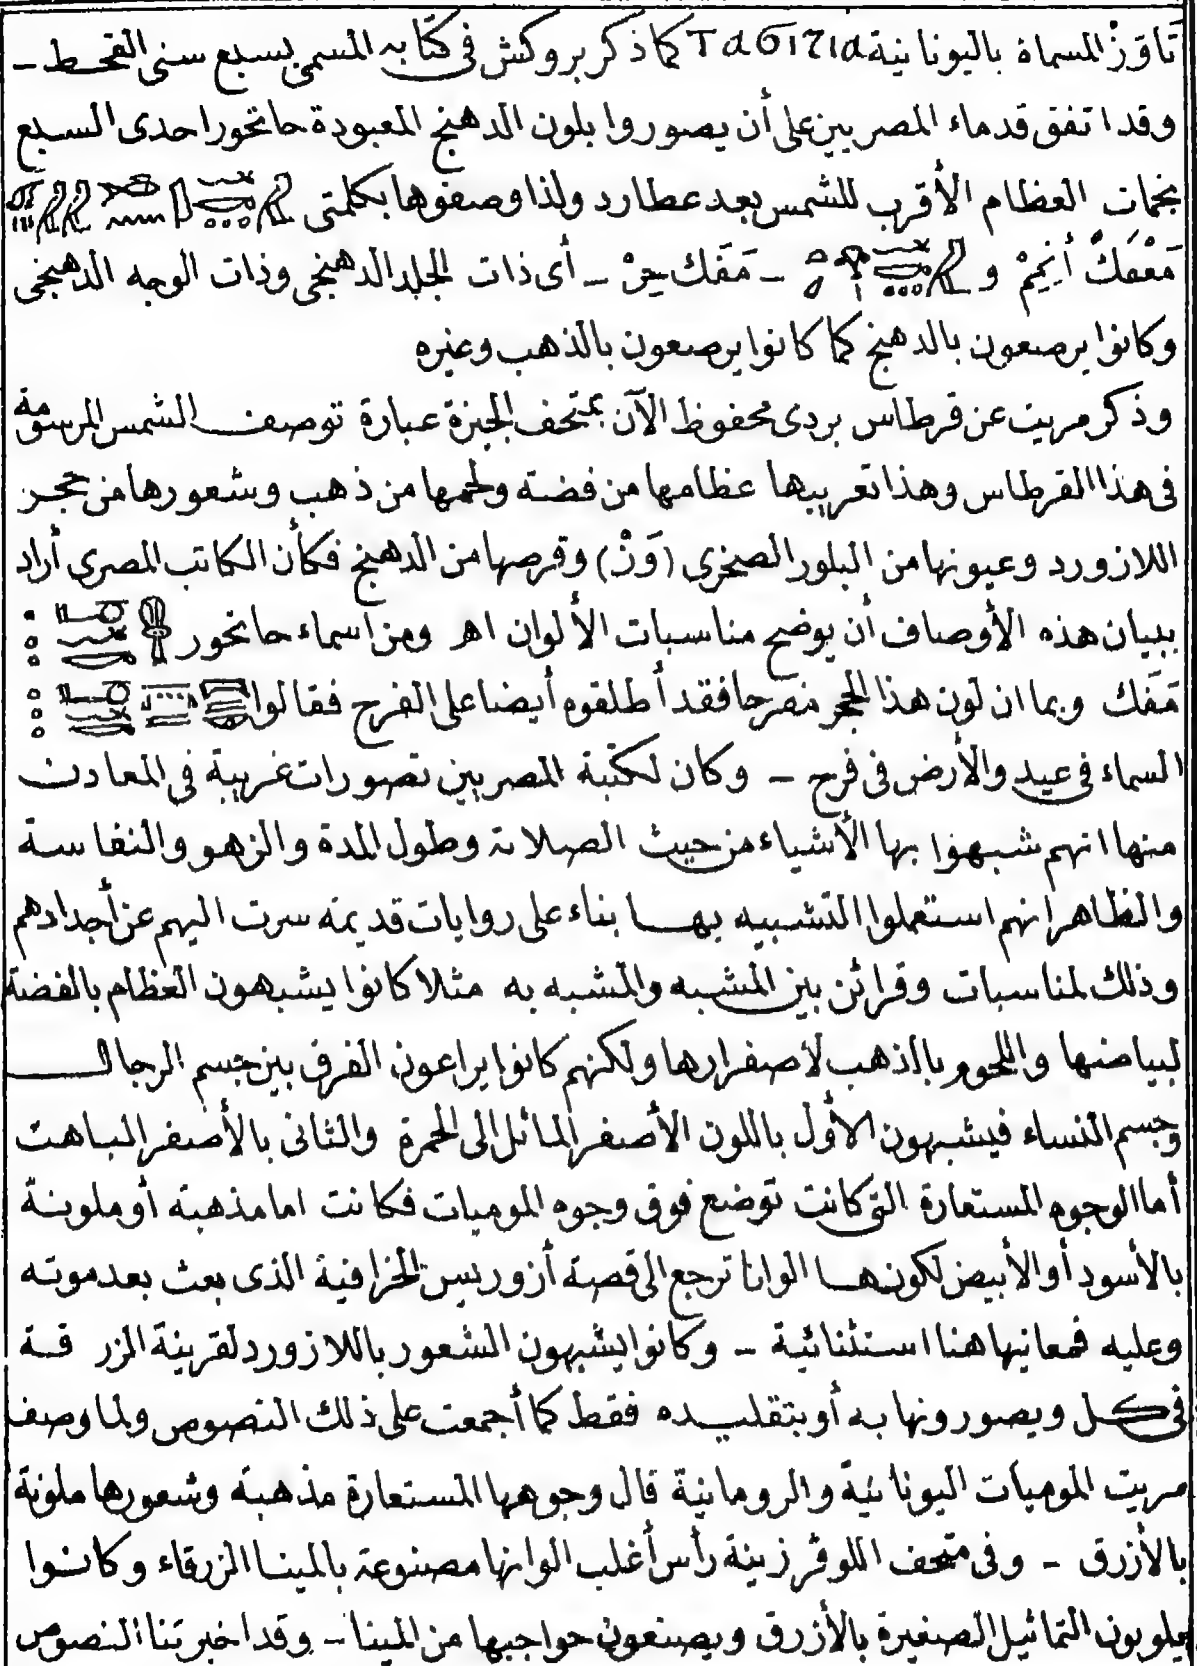 تَاوَزْ المسماة باليونانية Ταδιτια كما ذكر بروكش فى كتابه المسمى بسبع سنى القحط –
وقد اتفق قدماء المصريين على أن يصوروا بلون الدهنج المعبودة حاتحور احدى السبع
نجمات العظام الأقرب للشمس بعد عطارد ولذا وصفوها بكلمتى
مَعْفَكْ أَنِيمْ و – مَفَك حِرْ – أى ذات الجلد الدهنجى وذات الوجه الدهنجى
وكانوا يرصعون بالدهنج كما كانوا يرصعون بالذهب وغيره
وذكر مريت عن قرطاس بردى محفوظ الآن بمتحف الجيزة عبارة توصف الشمس المرسومة
فى هذا القرطاس وهذا تعريبها عظامها من فضة ولحمها من ذهب وشعورها من حجر
اللازورد وعيونها من البلور الصخرى (وَزْ) وقرصها من الدهنج فكأن الكاتب المصرى أراد
ببيان هذه الأوصاف أن يوضح مناسبات الألوان اهـ ومن اسماء حاتحور
مَفَك وبما ان لون هذا الحجر مفرحا فقد أطلقوه أيضا على الفرح فقالوا
السماء فى عيد والأرض فى فرح – وكان لكتبة المصريين تصورات غريبة فى المعادن
منها انهم شبهوا بها الأشياء من حيث الصلابة وطول المدة والزهو والنفاسة
والظاهر انهم استعملوا التشبيه بها بناء على روايات قديمة سرت اليهم عن أجدادهم
وذلك لمناسبات وقرائن بين المشبه والمشبه به مثلا كانوا يشبهون العظام بالفضة
لبياضها واللحوم بالذهب لاصفرارها ولكنهم كانوا يراعون الفرق بين جسم الرجال
وجسم النساء فيشبهون الأول باللون الأصفر المائل الى الحمرة والثانى بالأصفر الباهت
أما الوجوه المستعارة التى كانت توضع فوق وجوه الموميات فكانت اما مذهبة أو ملونة
بالأسود أو الأبيض لكونها الوانا ترجع الى قصة أزوريس الخرافية الذى بعث بعد موته
وعليه فمعانيها هنا استثنائية – وكانوا يشبهون الشعور باللازورد لقرينة الزرقة
فى كل ويصورونها به أو بتقليده فقط كما أجمعت على ذلك النصوص ولما وصف
مريت الموميات اليونانية والرومانية قال وجوهها المستعارة مذهبة وشعورها ملونة
بالأزرق – وفى متحف اللوفر زينة رأس أغلب الوانها مصنوعة بالمينا الزرقاء وكانوا
يلونون التماثيل الصغيرة بالأزرق ويصنعون حواجبها من المينا – وقد اخبرتنا النصوص